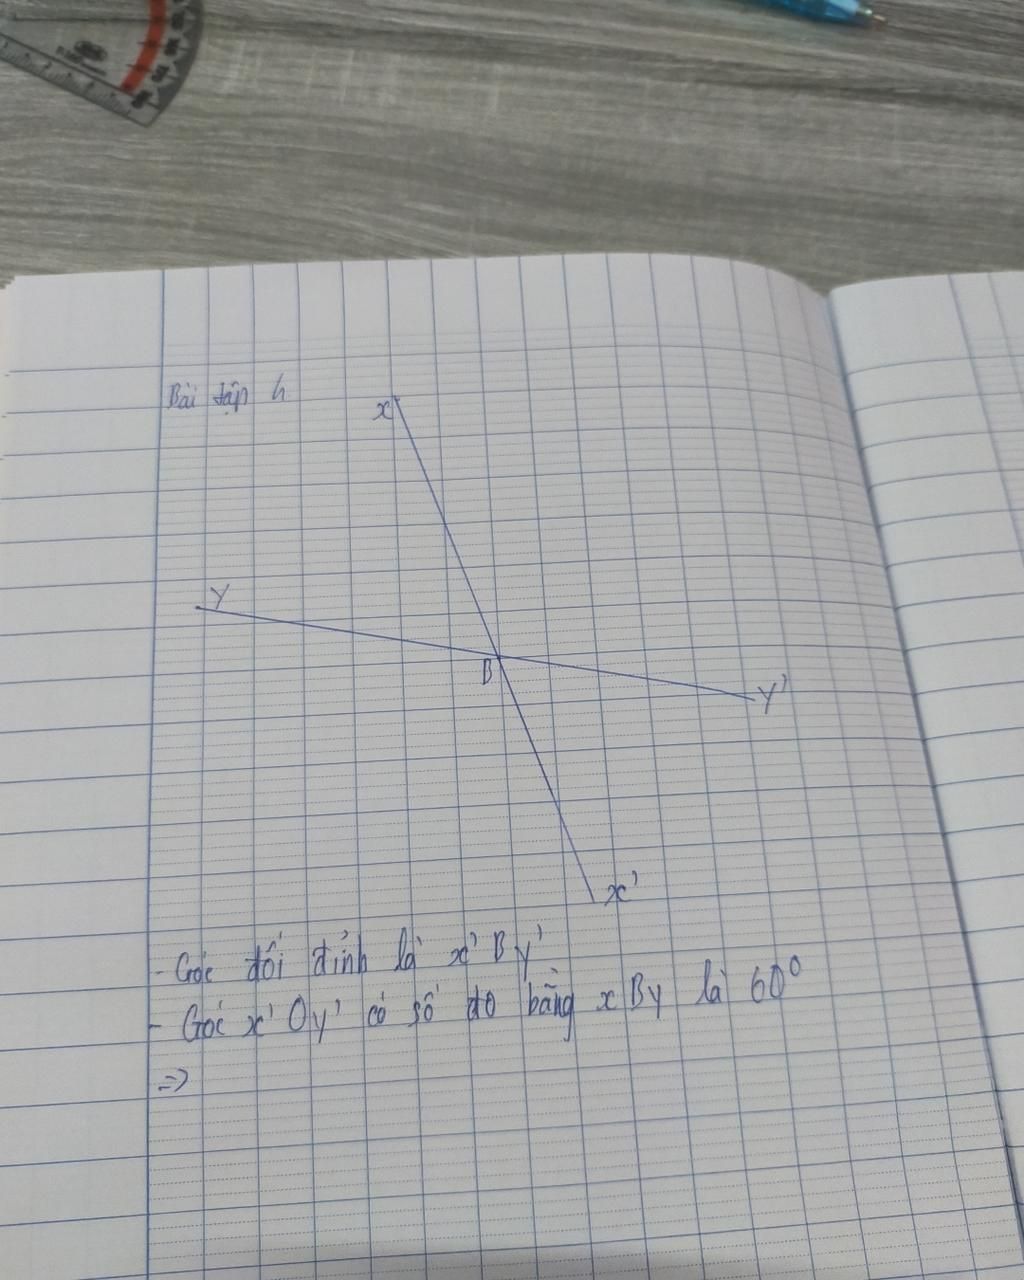 Bài tập 4
x
Y
B
Y'
x'
- Góc đối đỉnh là x' B y'
- Góc x' Oy' có số đo bằng x By là 60°
=>